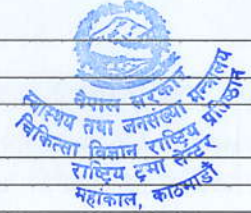 नेपाल सरकार
स्वास्थ्य तथा जनसंख्या मन्त्रालय
चिकित्सा विज्ञान राष्ट्रिय प्रतिष्ठान
राष्ट्रिय ट्रमा सेन्टर
महांकाल, काठमाडौं